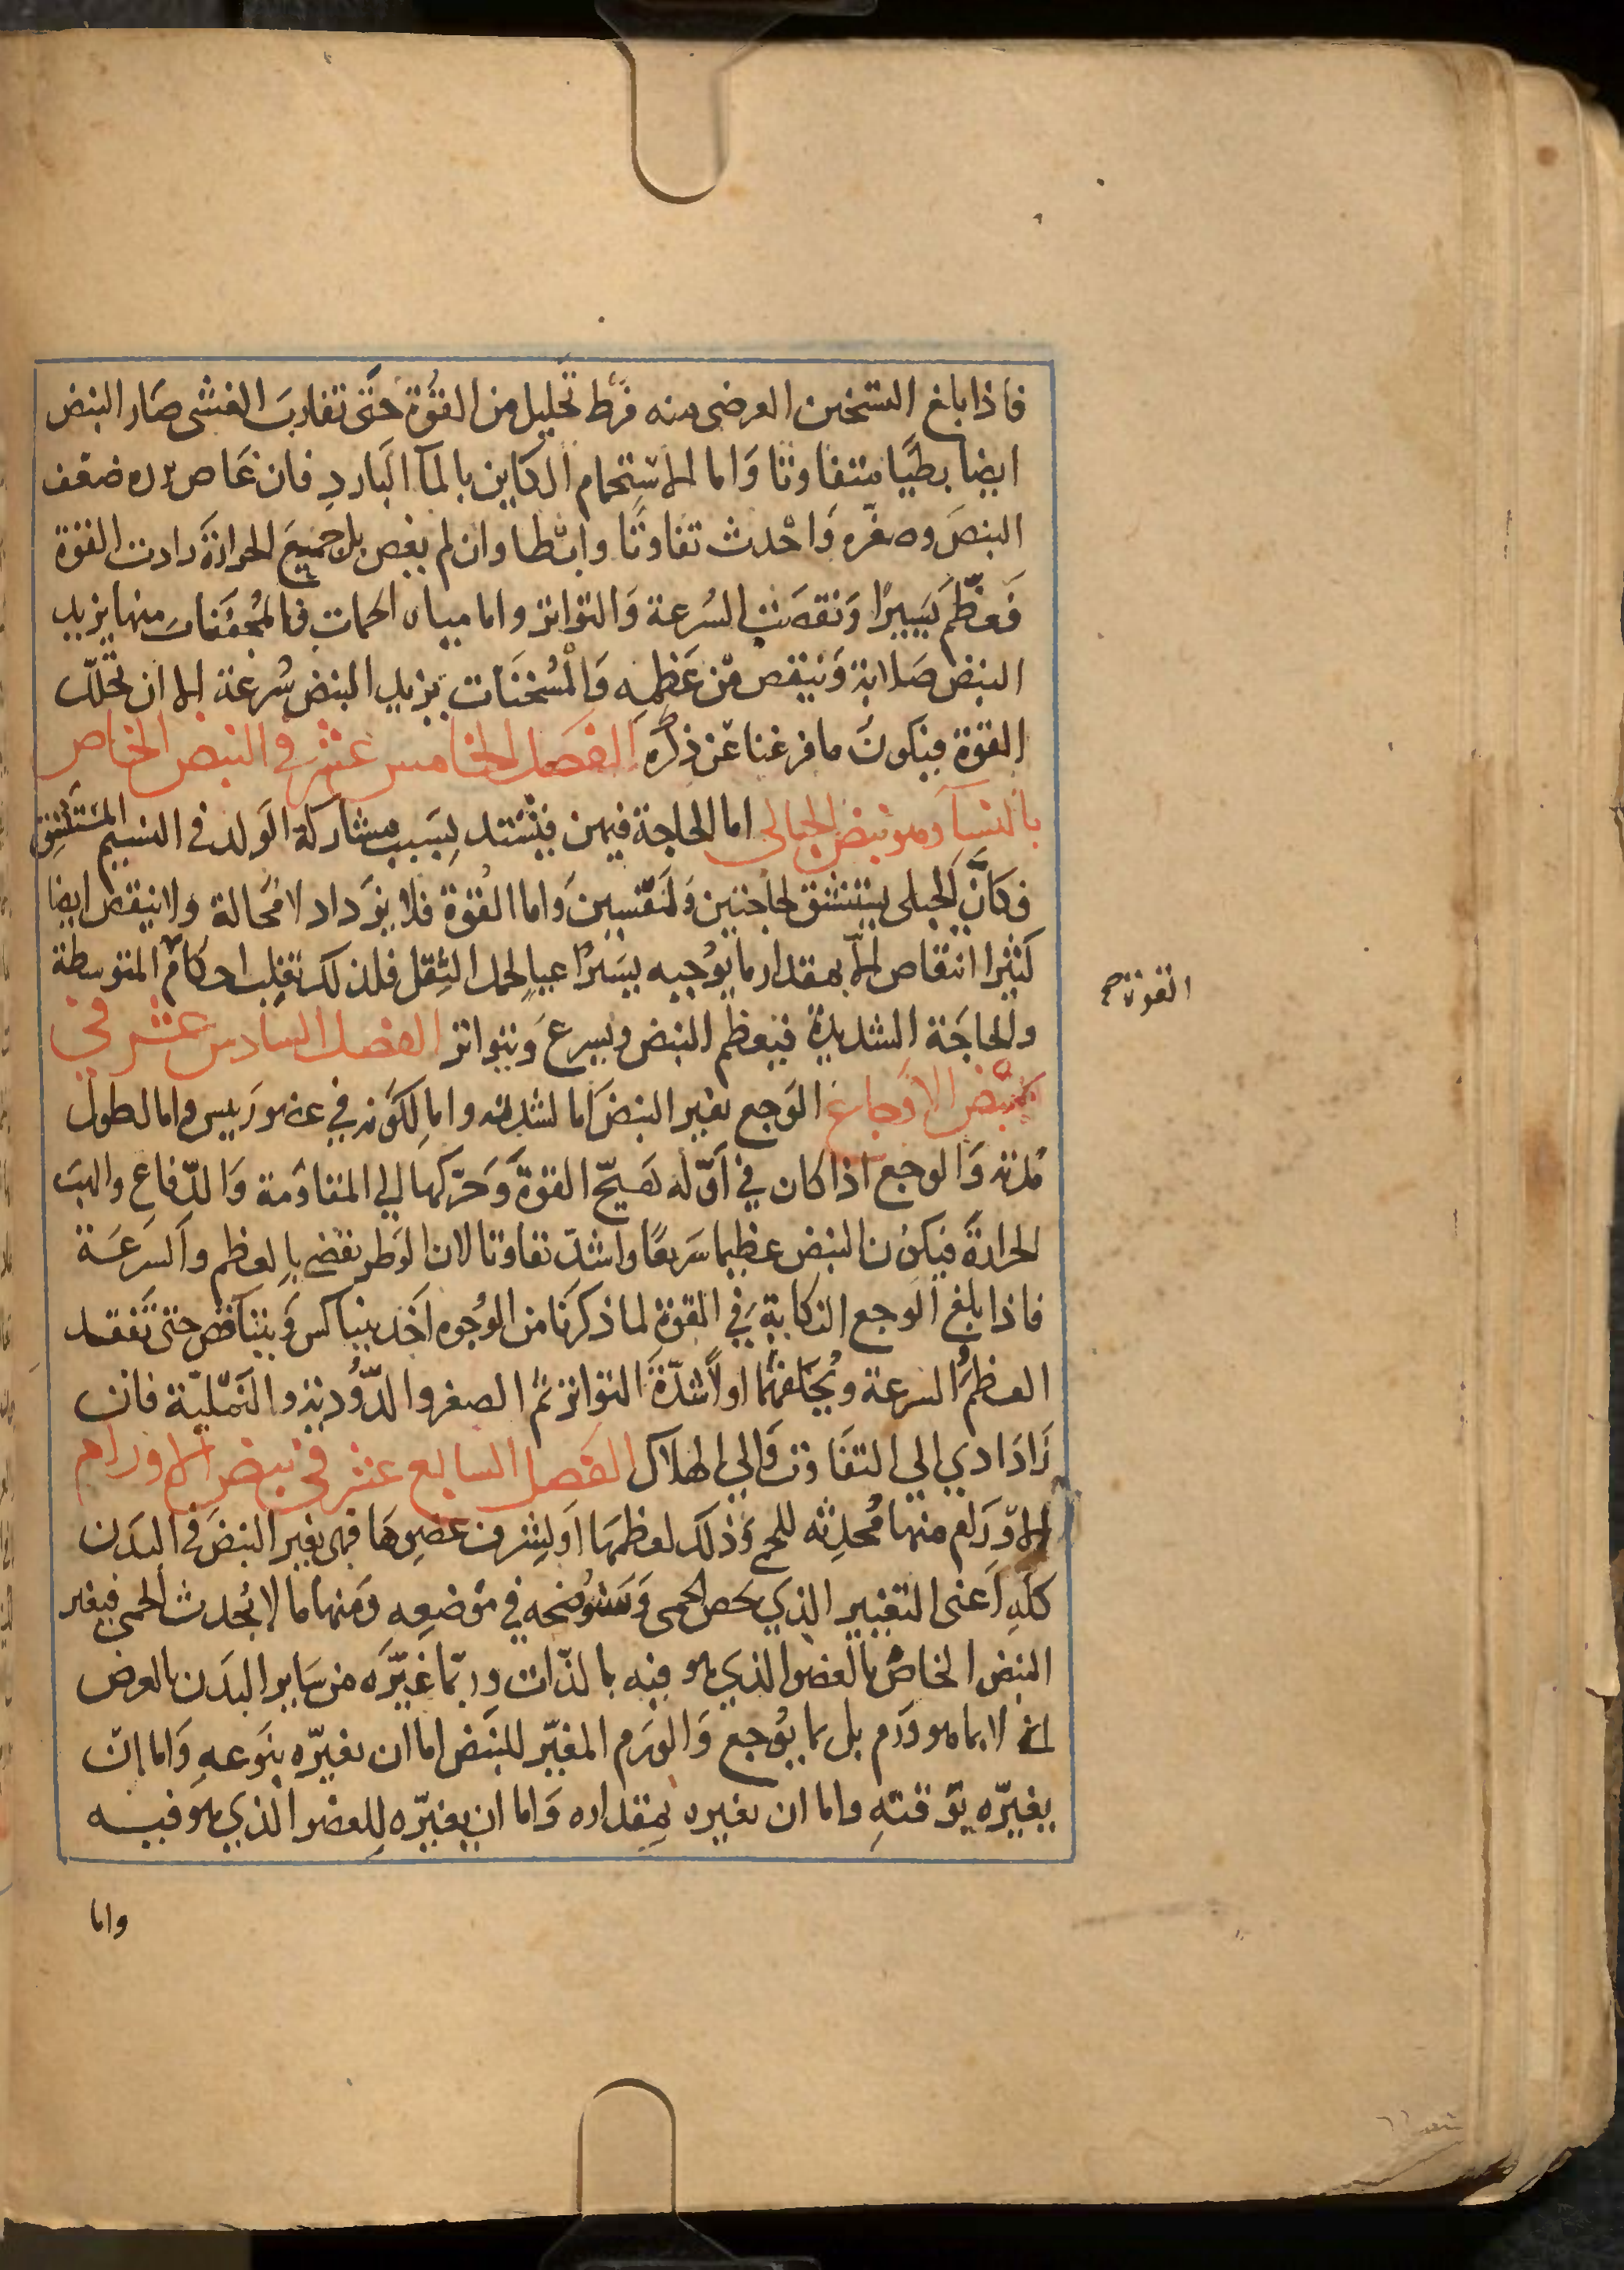 فاذا بلغ التسخين العرضى منه فرط تحليل من القوة حتى تقارب الغشى صار النبض
ايضا بطيًا متفاوتا واما الاستحمام الكاين بالمآ البارد فان غاص برده ضعف
النبض وصغّره واحدث تفاوتا وابطا وان لم يغص بل جميع الحرارة زادت القوة
فعظّم يسيرًا ونقصت السرعة والتواتر واما مياه الحمات فالمجففات منها يزيد
النبض صلابة وينقص من عظمه والمسخنات يزيد النبض سرعة الا ان تحلل
القوة فيكون ما فرغنا عن ذكره الفصل الخامس عشر في النبض الخاص
بالنسآ وهو نبض الحبالى اما الحاجة فيهن فيشتد بسبب مشاركة الولد في النسيم المستنشق
فكانّ الحبلى يستنشق لحاجتين ولنفسين واما القوة فلا يزداد لا محالة ولا ينقص ايضا
كثيرا انتقاص الا بمقدار ما يوجبه يسيرا عيا لحمل الثقل فلذلك تغلب احكام المتوسطة
القوة صح
والحاجة الشديدة فيعظم النبض ويسرع ويتواتر الفصل السادس عشر في
نبض الاوجاع الوجع يغير النبض اما لشدته واما لكونه في عضو رييس واما لطول
مدته والوجع اذا كان في اوّله هيّج القوة وحرّكها الي المقاومة والدفاع والهب
الحرارة فيكون النبض عظيما سريعًا واشدّ تفاوتا لان الوطر يقضى بالعظم والسرعة
فاذا بلغ الوجع النكاية في القوة لما ذكرنا من الوجوه اخذ يتناكس ويتناقص حتى تفقد
العظم والسرعة ويخلفهما اولًا شدّة التواتر ثم الصغر والدّوديّة والنمليّة فان
زاد ادي الي التفاوت والي الهلاك الفصل السابع عشر في نبض الاورام
الاورام منها محدثه للحمى وذلك لعظمها او لشرف عضوها فهى يغير النبض في البدن
كلّه اعنى التغيير الذي يخص الحمى وسنوضحه في موضعه ومنها ما لا يحدث الحمى فيغير
النبض الخاص بالعضو الذي هو فيه بالذات وربّما غيّره من ساير البدن بالعرض
اى لا بما هو ورم بل بما يوجع والورم المغيّر للنبض اما ان يغيّره بنوعه واما ان
يغيّره بوقته واما ان يغيره بمقداره واما ان يغيّره للعضو الذي هو فيه
واما